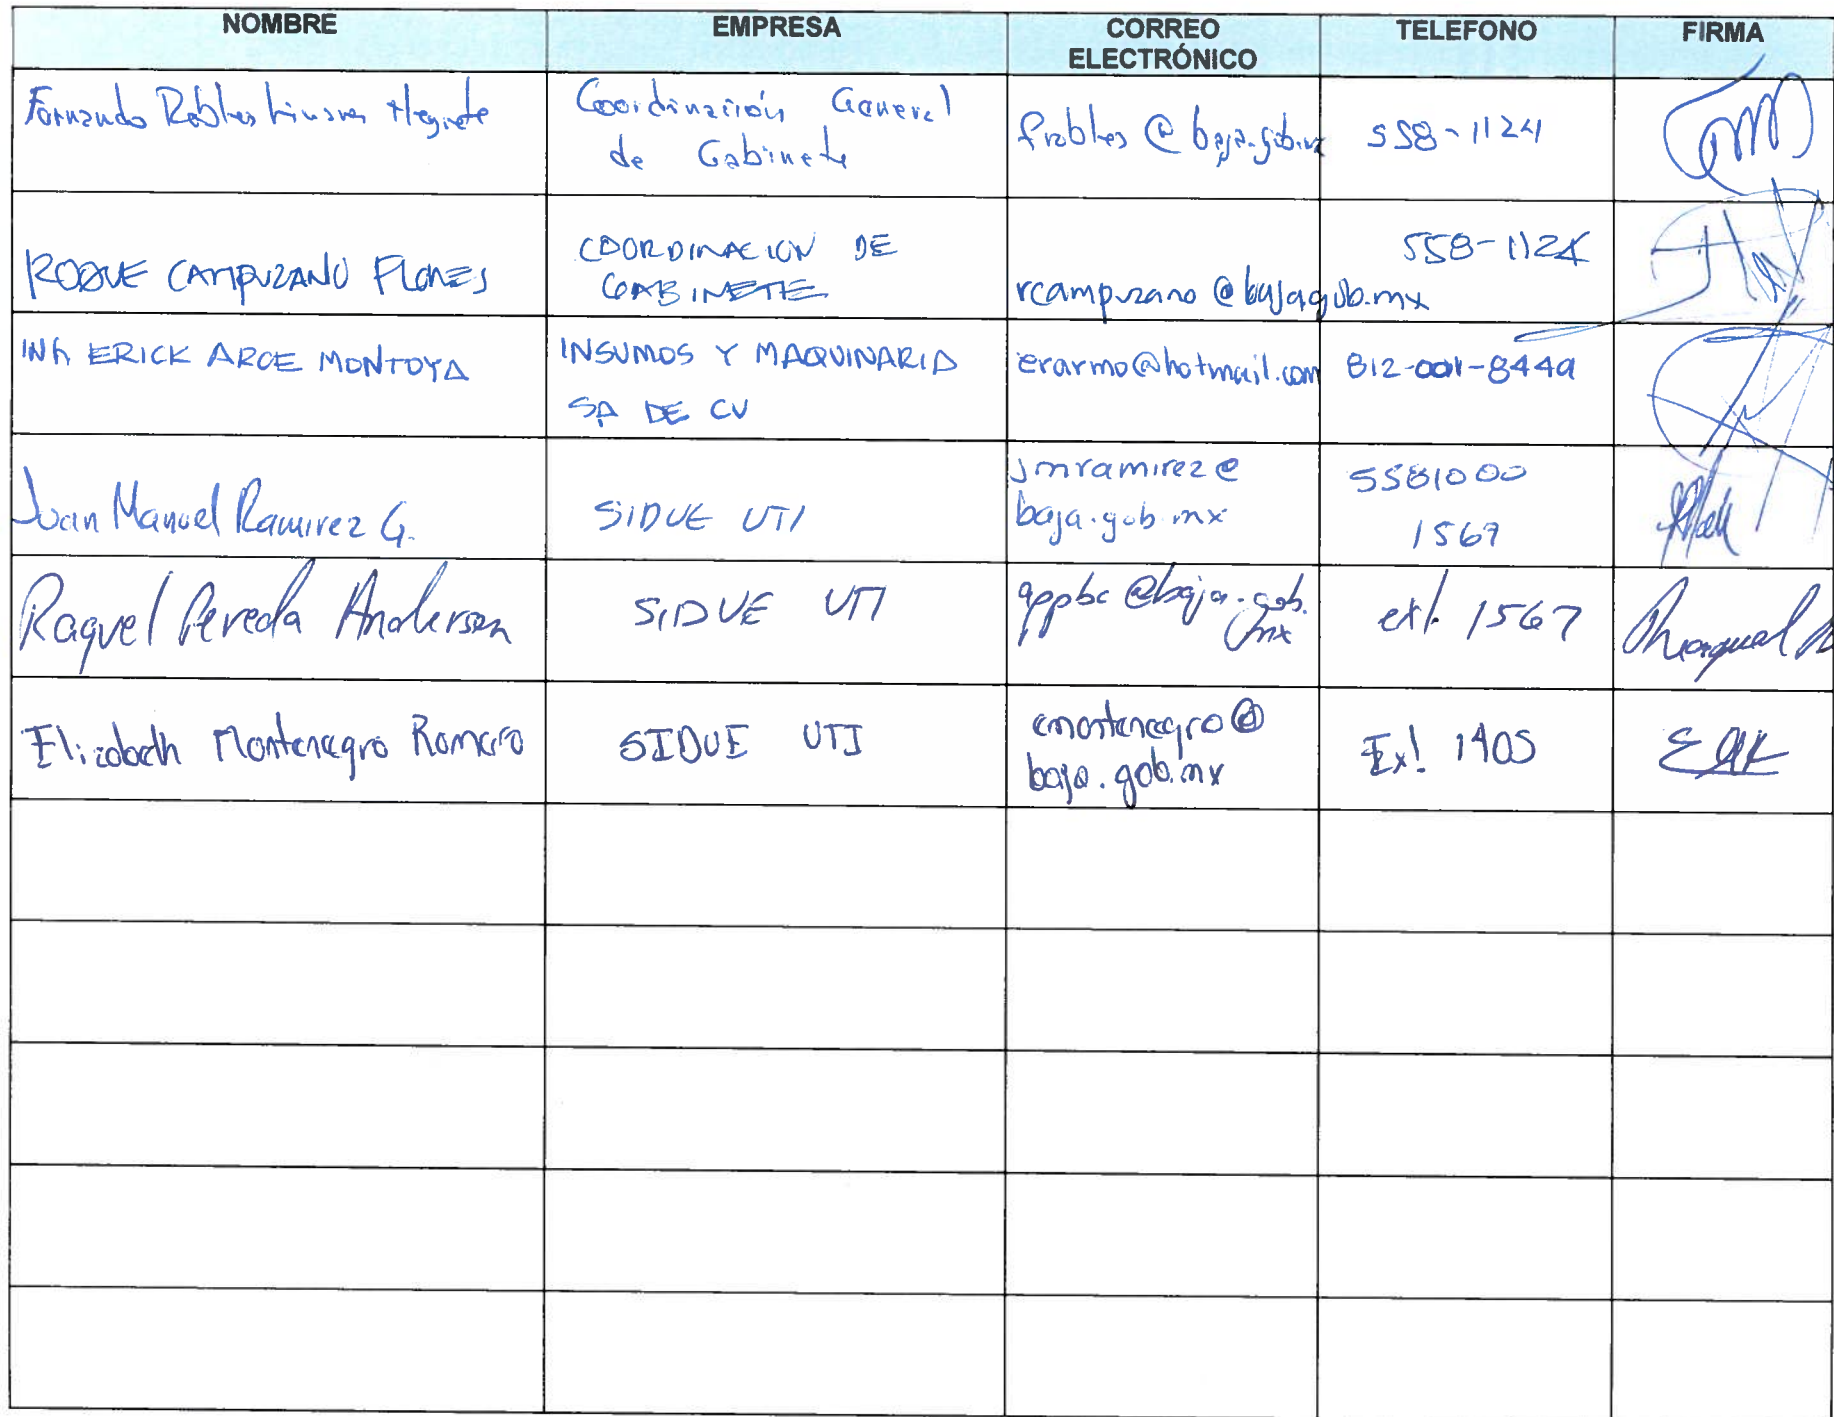 NOMBRE
EMPRESA
CORREO
ELECTRÓNICO
TELEFONO
FIRMA
Fernando Robles Negrete
Coordinación General
de Gabinete
frobles@baja.gob.mx
558-1124
ROQUE CAMPUZANO FLORES
COORDINACION DE
GABINETE
rcampuzano@bajagob.mx
558-1124
ING ERICK ARCE MONTOYA
INSUMOS Y MAQUINARIA
SA DE CV
erarmo@hotmail.com
812-001-8449
Juan Manuel Ramirez G.
SIDUE UTI
jmramirez@
baja.gob.mx
5581000
1567
Raquel Pereda Anderson
SIDUE UTI
@baja.gob.
mx
ext. 1567
Elizabeth Montenegro Romero
SIDUE UTI
emontenegro@
baja.gob.mx
Ext 1405